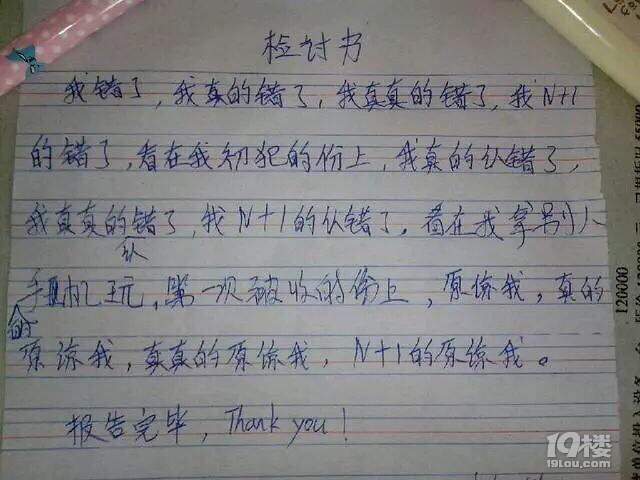 检讨书
我错了，我真的错了，我真真的错了，我N+1
的错了，看在我初犯的份上，我真的认错了，
我真真的认错了，我N+1的认错了，看在我拿别人的
手机玩，第一次被收的份上，原谅我，真的
原谅我，真真的原谅我，N+1的原谅我。
报告完毕，Thank you！
120000
19楼
19lou.com